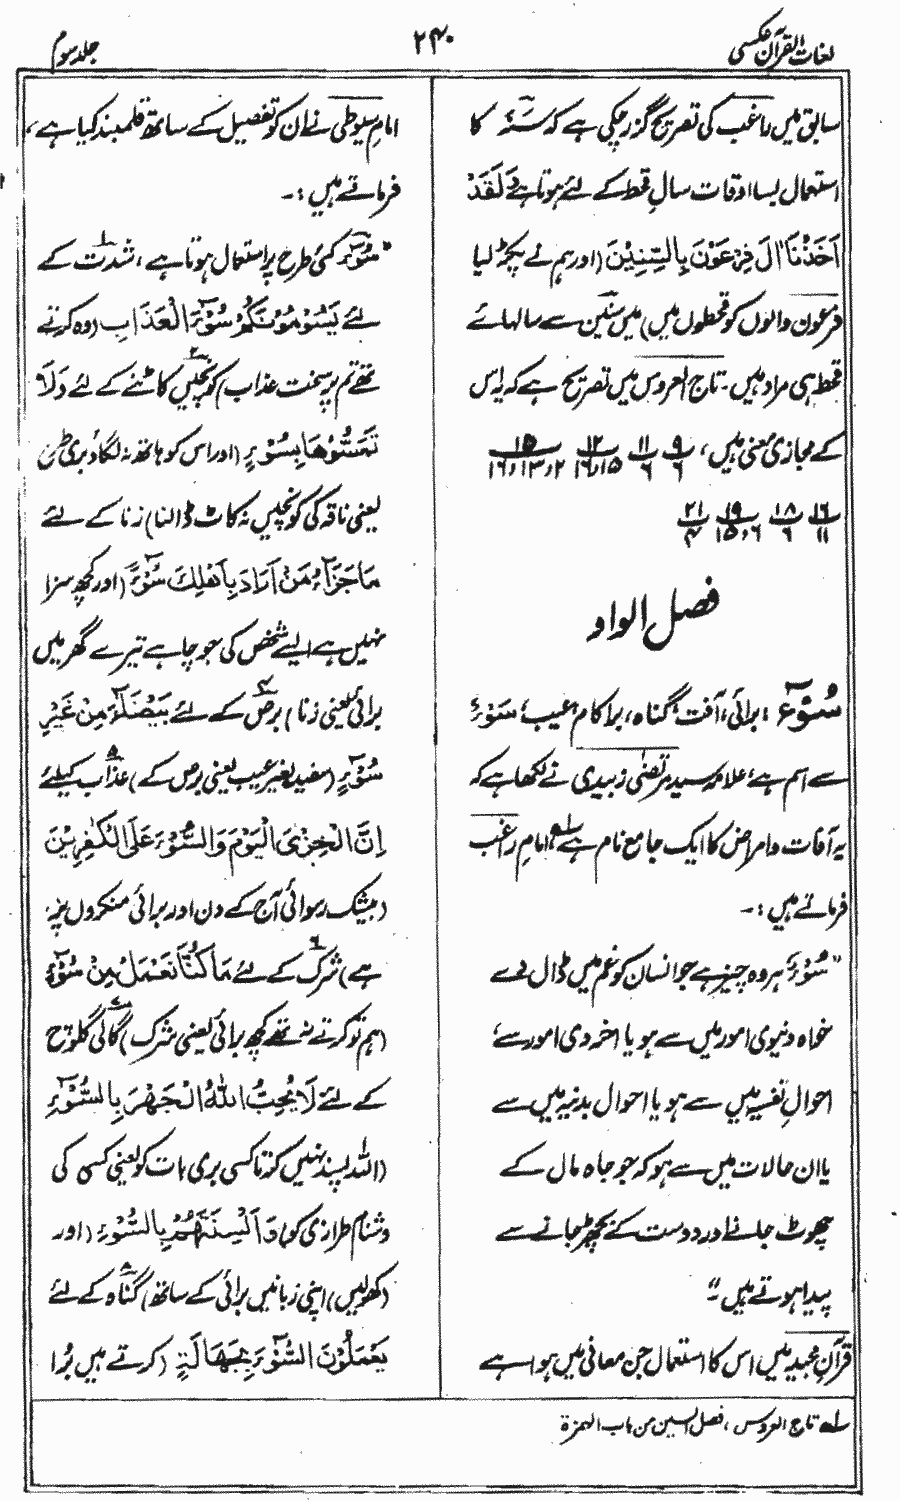 لغات القرآن عکسی
۲۴۰
جلد سوم
سابق میں راغب کی تصریح گزر چکی ہے کہ سَنَۃٌ کا
استعمال بسا اوقات سالِ قحط کے لئے ہوتا ہے وَلَقَدْ
اَخَذْنَا اٰلَ فِرْعَوْنَ بِالسِّنِیْنَ (اور ہم نے پکڑ لیا
فرعون والوں کو قحطوں میں) میں سنین سے سالہائے
قحط ہی مراد ہیں۔ تاج العروس میں تصریح ہے کہ یہ اس
کے مجازی معنی ہیں، ۹/۶ ۱۱/۶ ۱۲/۱۵،۱۶ ۱۵/۲،۱۳،۱۶
۱۶/۱۱ ۱۸/۶ ۱۹/۶،۱۵ ۲۱/۴
فصل الواو
سُوْٓءٌ : برائی، آفت، گناہ، برا کام، عیب، سَوْءٌ
سے اسم ہے، علامہ سید مرتضیٰ زبیدی نے لکھا ہے کہ
یہ آفات و امراض کا ایک جامع نام ہے لہ، امام راغب
فرماتے ہیں :۔
"سُوْٓءٌ ہر وہ چیز ہے جو انسان کو غم میں ڈال دے
خواہ دنیوی امور میں سے ہو یا اخروی امور سے،
احوالِ نفسیہ میں سے ہو یا احوال بدنیہ میں سے
یا ان حالات میں سے ہو کہ جو جاہ و مال کے
چھوٹ جانے اور دوست کے بچھڑ جانے سے
پیدا ہوتے ہیں ۔"
قرآن مجید میں اس کا استعمال جن معانی میں ہوا ہے
امام سیوطی نے ان کو تفصیل کے ساتھ قلمبند کیا ہے،
فرماتے ہیں :۔
"سُوْٓءٌ کئی طرح پر استعمال ہوتا ہے، شدت کے
لئے یَسُوْمُوْنَكُمْ سُوْٓءَ الْعَذَابِ (وہ کرتے
تھے تم پر سخت عذاب) کونچیں کاٹنے کے لئے وَلَا
تَمَسُّوْهَا بِسُوْٓءٍ (اور اس کو ہاتھ نہ لگاؤ بری طرح
یعنی ناقہ کی کونچیں نہ کاٹ ڈالنا) زنا کے لئے
مَا جَزَآءُ مَنْ اَرَادَ بِاَهْلِكَ سُوْٓءًا (اور کچھ سزا
نہیں ہے ایسے شخص کی جو چاہے تیرے گھر میں
برائی یعنی زنا) برص کے لئے بَيْضَآءَ مِنْ غَيْرِ
سُوْٓءٍ (سفید بغیر عیب یعنی برص کے) عذاب کیلئے
اِنَّ الْخِزْىَ الْيَوْمَ وَالسُّوْٓءَ عَلَى الْكٰفِرِيْنَ
(بیشک رسوائی آج کے دن اور برائی منکروں پر
ہے) شرک کے لئے مَا كُنَّا نَعْمَلُ مِنْ سُوْٓءٍ
(ہم تو کرتے نہ تھے کچھ برائی یعنی شرک) گالی گلوچ
کے لئے لَا يُحِبُّ اللّٰهُ الْجَهْرَ بِالسُّوْٓءِ
(اللہ پسند نہیں کرتا کسی بری بات کو یعنی کسی کی
دشنام طرازی کو) وَ اَلْسِنَتَهُمْ بِالسُّوْٓءِ (اور
(کھولیں) اپنی زبانیں برائی کے ساتھ) گناہ کے لئے
يَعْمَلُوْنَ السُّوْٓءَ بِجَهَالَةٍ (کرتے ہیں بُرا
لہ تاج العروس، فصل السین من باب الہمزۃ